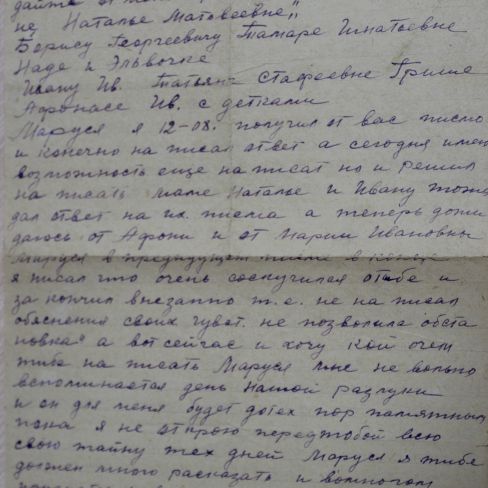 дайте от
не Наталье Матвеевне,,
Борису Георгеевичу Тамаре Игнатьевне
Наде и Эльвочке
Ивану Ив. Татьяне Стафеевне Грише
Афонасе Ив. с детками
Маруся я 12-08. получил от вас писмо
и конечно на писал ответ а сегодня имею
возможность еще на писат но и решил
на писать маме Наталье и Ивану тоже
дал ответ на их писма а теперь дожи
даюсь от Афони и от Марии Ивановны
Маруся в предидущем писме в конце
я писал что очень соскучился отебе и
за кончил внезапно т.е. не на писал
обяснения своих чуват. не позволила обста
новка а вот сейчас и хочу кой очем
тибе на писать Маруся мне не вольно
вспоминается день Нашой разлуки
и он для меня будет дотех пор памятным
пока я не открою передтобой всю
свою тайну тех дней Маруся я тибе
должен много расказать и вомногом